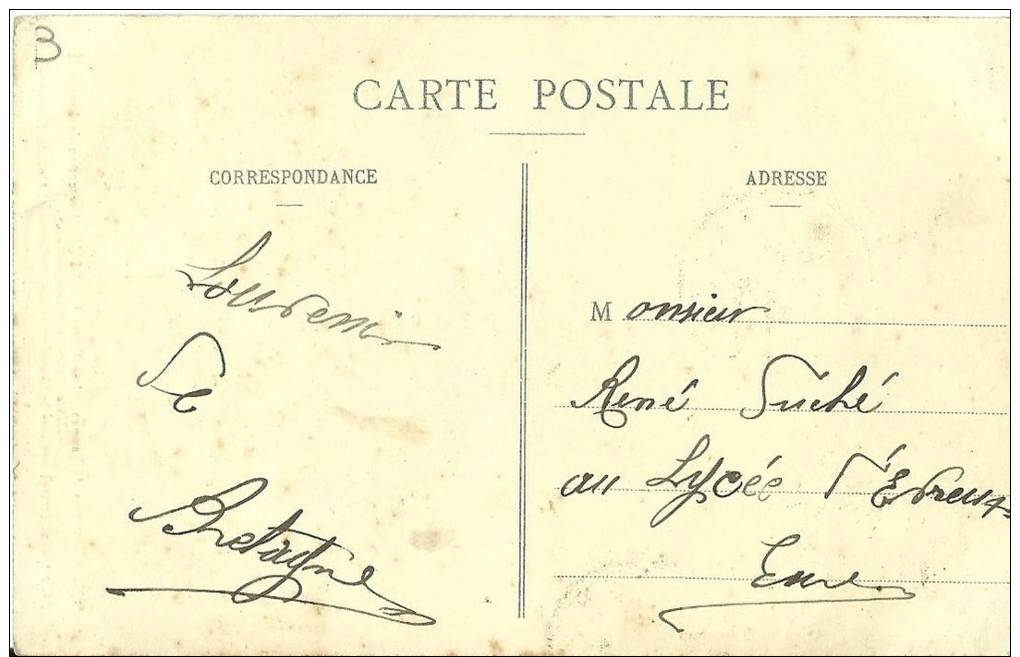 B
CARTE POSTALE
CORRESPONDANCE
Souvenir
de
Bretagne
ADRESSE
Monsieur
René Suché
au Lycée d'Évreux
Eure